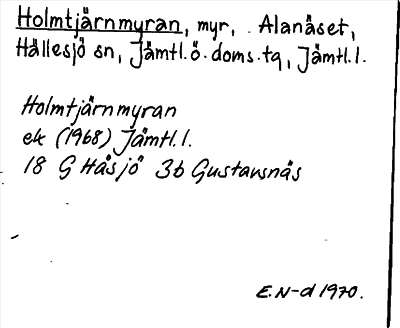 Holmtjärnmyran, myr, Alanäset,
Hällesjö sn, Jämtl.ö.doms.tg, Jämtl.l.
Holmtjärnmyran
ek (1968) Jämtl.l.
18 G Håsjö 3b Gustavsnäs
E.N-d 1970.